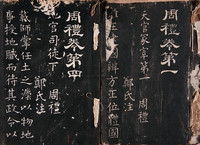 周禮卷第一
天官冢宰第一 周禮
鄭氏注
惟王建國辨方正位體國
周禮卷第四
官司徒下 周禮
鄭氏注
載師掌任土之灋以物地
事授地職而待其政令以